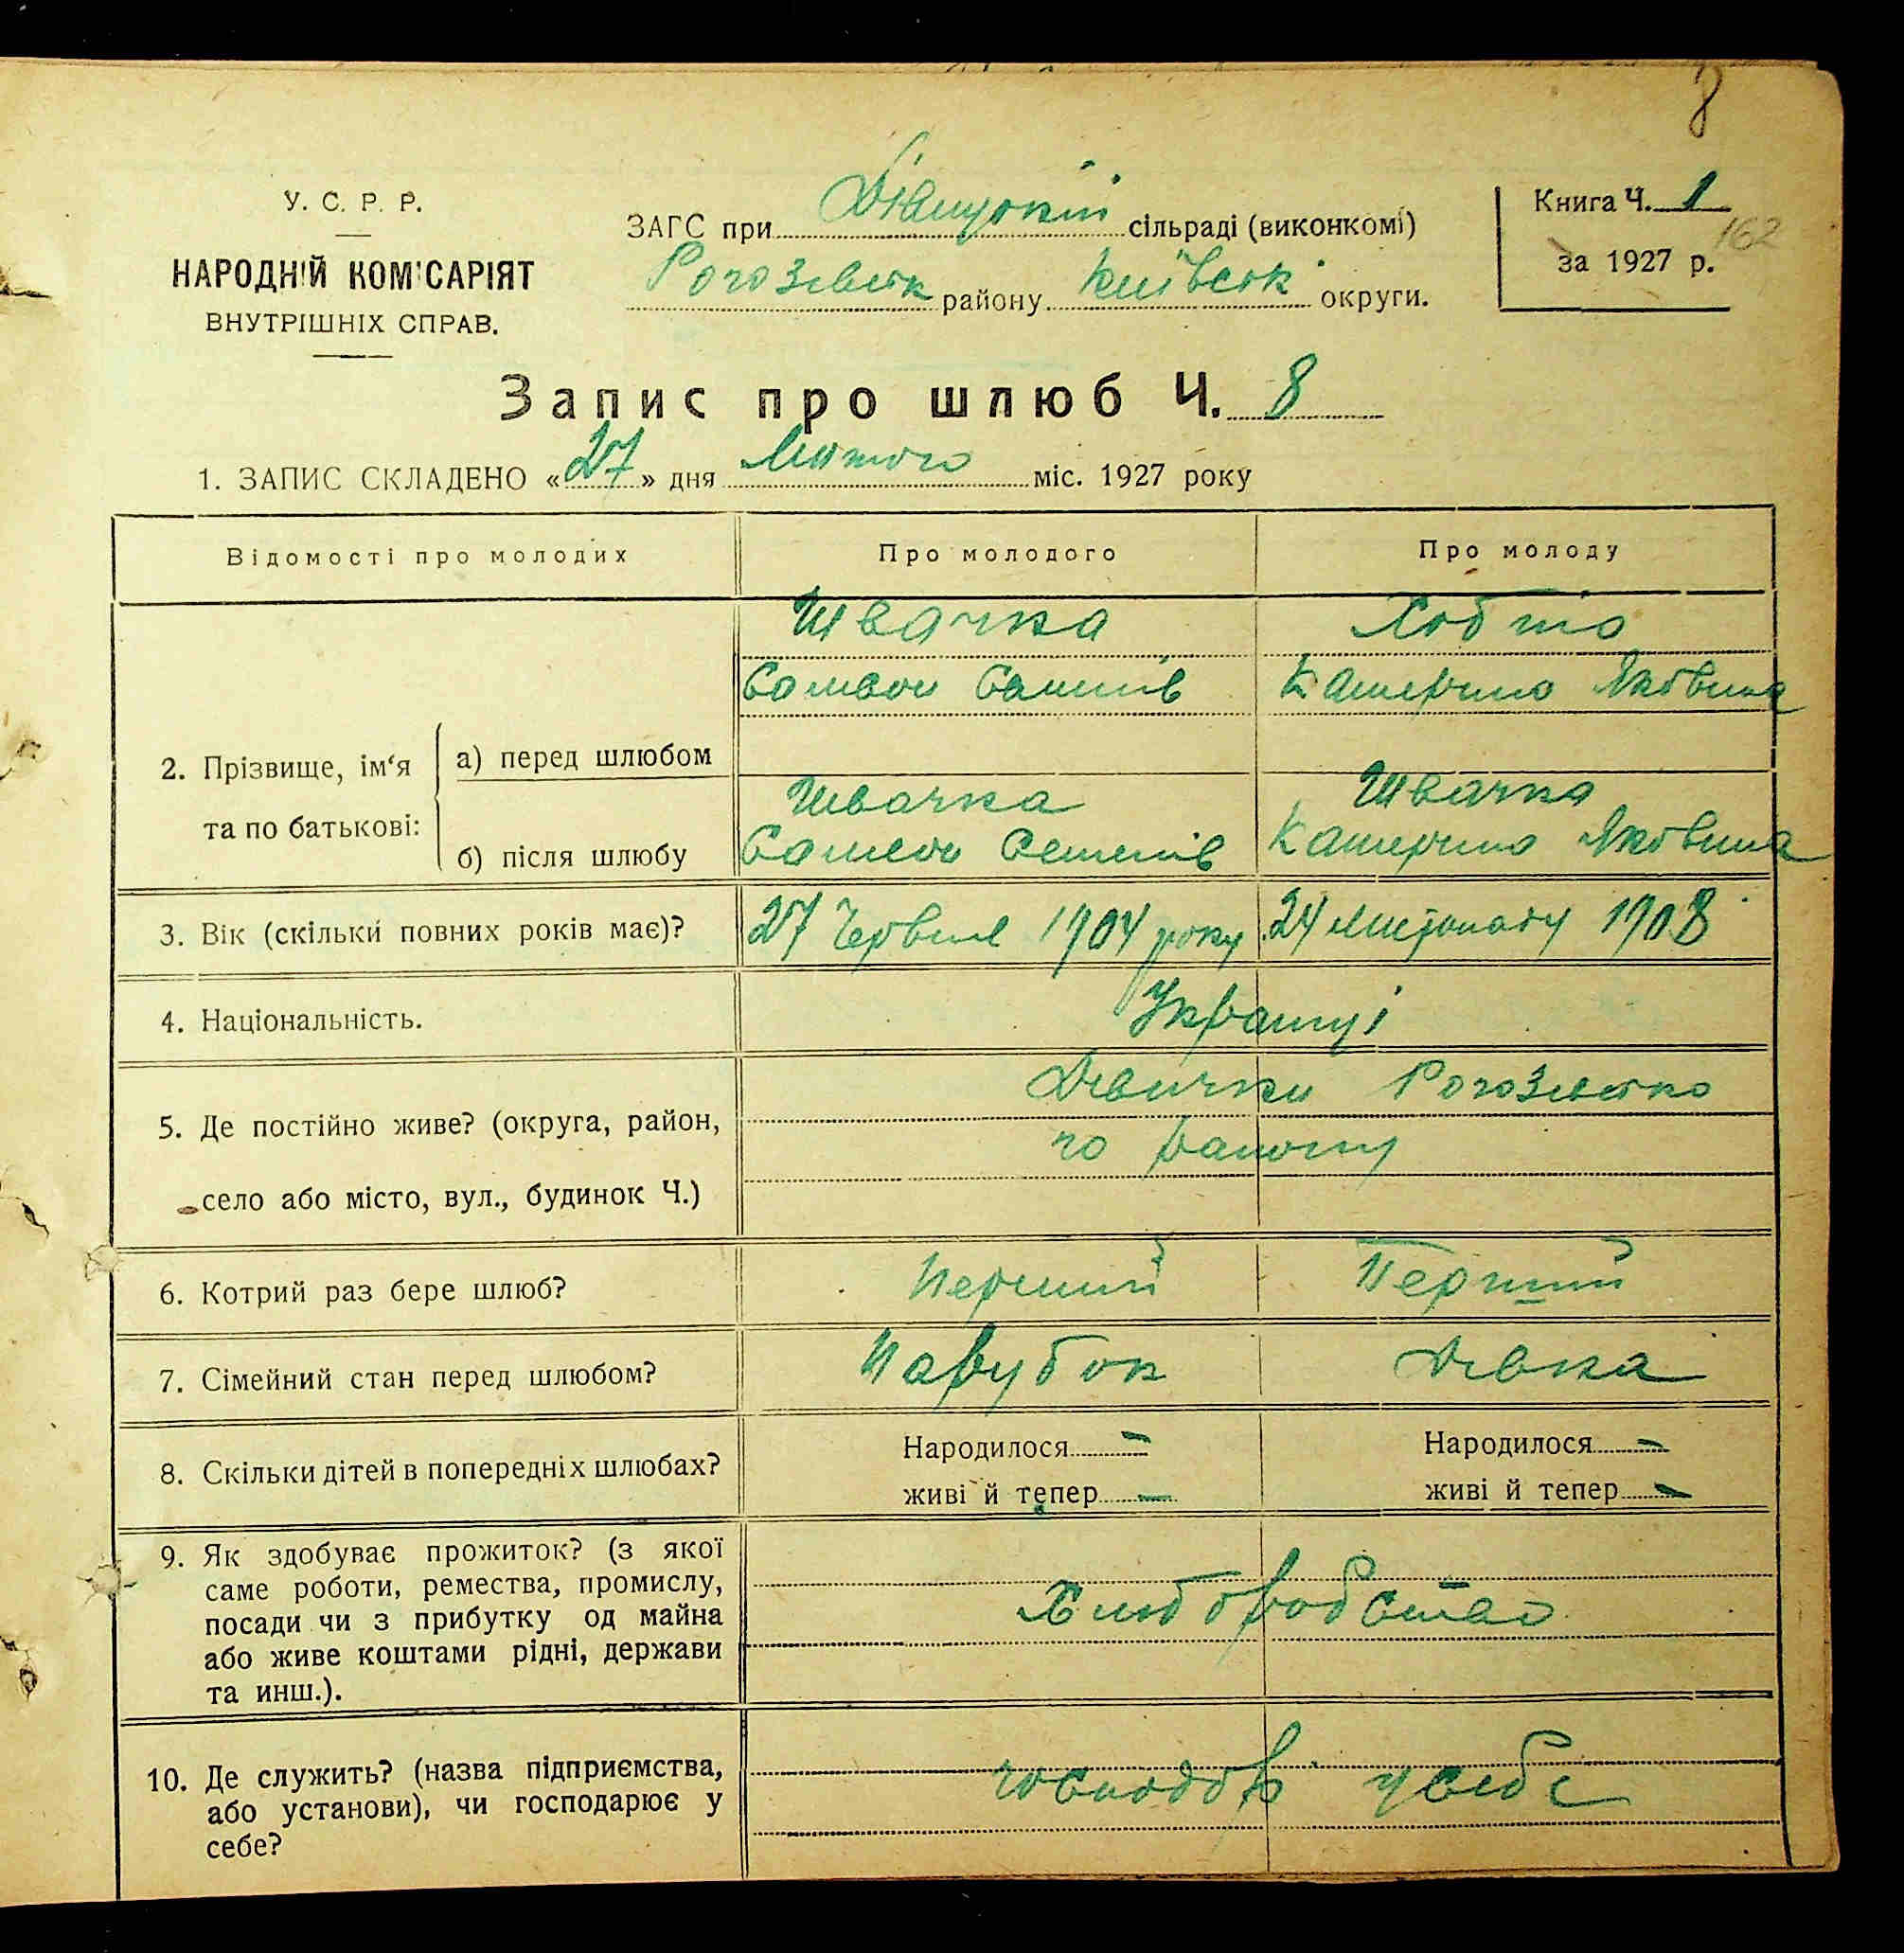 8
У. С. Р. Р.
НАРОДНІЙ КОМІСАРІЯТ
ВНУТРІШНІХ СПРАВ.
ЗАГС при Дівицькій сільраді (виконкомі)
Рогозівськ району Київськ округи.
Книга Ч. 1
162
за 1927 р.
Запис про шлюб Ч. 8
1. ЗАПИС СКЛАДЕНО «27» дня Лютого міс. 1927 року
Відомості про молодих
Про молодого
Про молоду
2. Прізвище, ім'я та по батькові:
а) перед шлюбом
Швачка
Самсон
Хобта
Катерина Яковина
б) після шлюбу
Швачка
Самсон Семенів
Швачка
Катерина Яковина
3. Вік (скільки повних років має)?
27 Червня 1904 року
24 листопаду 1908
4. Національність.
Українці
5. Де постійно живе? (округа, район,
село або місто, вул., будинок Ч.)
Дівички Рогозівсько
го району
6. Котрий раз бере шлюб?
Перший
Перший
7. Сімейний стан перед шлюбом?
Парубок
Дівка
8. Скільки дітей в попередніх шлюбах?
Народилося –
живі й тепер –
Народилося –
живі й тепер –
9. Як здобуває прожиток? (з якої
саме роботи, ремества, промислу,
посади чи з прибутку од майна
або живе коштами рідні, держави
та инш.).
Хліборобство
10. Де служить? (назва підприємства,
або установи), чи господарює у
себе?
господар у себе